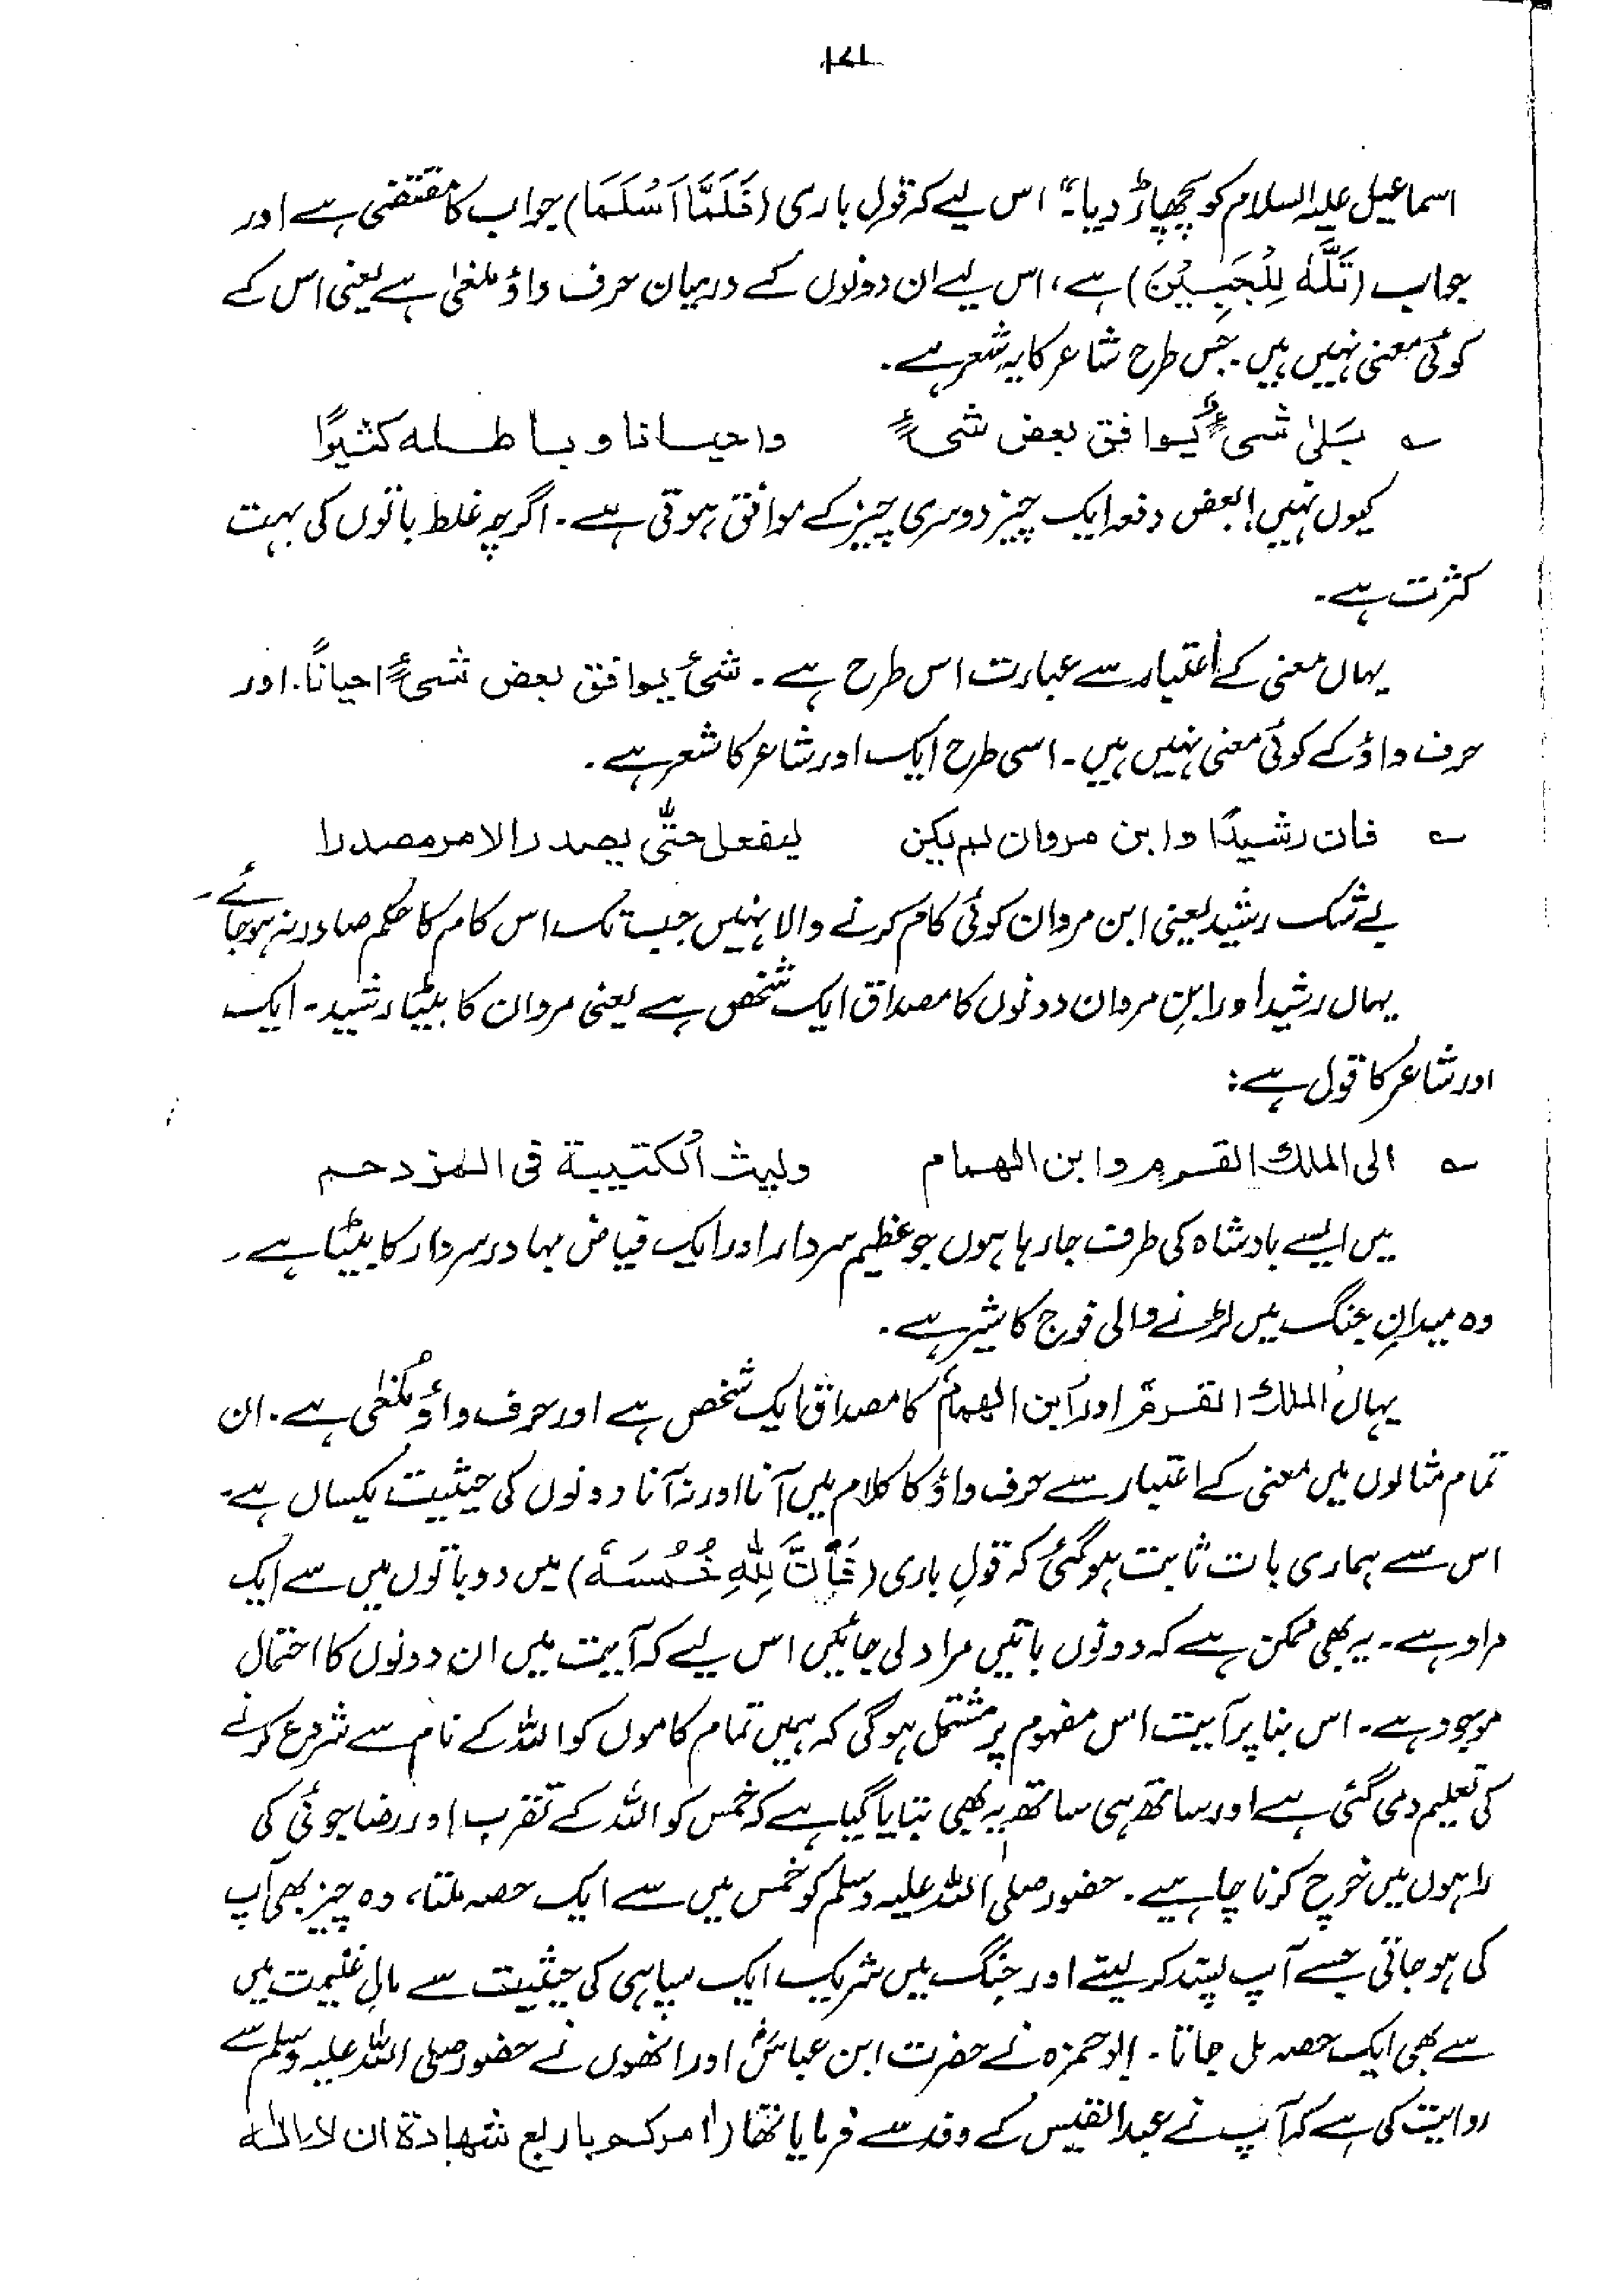 ۱۷۱
اسماعیل علیہ السلام کو پچھاڑ دیا۔" اس لیے کہ قول باری (فَلَمَّا اَسْلَمَا) جواب کا مقتضی ہے اور
جواب (تَلَّهٗ لِلْجَبِيْنَ) ہے، اس لیے ان دونوں کے درمیان حرف واؤ ملغیٰ ہے یعنی اس کے
کوئی معنی نہیں ہیں۔ جس طرح شاعر کا یہ شعر ہے۔
؎ بَلیٰ شیءٌ یُوافق بعض شیءٍ واحیانا و باطلہ کثیرًا
کیوں نہیں! بعض دفعہ ایک چیز دوسری چیز کے موافق ہوتی ہے۔ اگرچہ غلط باتوں کی بہت
کثرت ہے۔
یہاں معنی کے اعتبار سے عبارت اس طرح ہے۔ شیٔ یوافق بعض شیءٍ احیاناً۔ اور
حرف واؤ کے کوئی معنی نہیں ہیں۔ اسی طرح ایک اور شاعر کا شعر ہے۔
؎ فان رشیدًا وابن مروان لم یکن لیفعل حتّٰی یصدر الامر مصدرا
بے شک رشید یعنی ابن مروان کوئی کام کرنے والا نہیں جب تک اس کام کا حکم صادر نہ ہو جائے۔
یہاں رشید اور ابنِ مروان دونوں کا مصداق ایک شخص ہے یعنی مروان کا بیٹا رشید۔ ایک
اور شاعر کا قول ہے:
؎ الی الملک القرم وابن الھمام ولیث الکتیبة فی المزدحم
میں ایسے بادشاہ کی طرف جا رہا ہوں جو عظیم سردار اور ایک فیاض بہادر سردار کا بیٹا ہے۔
وہ میدانِ جنگ میں لڑنے والی فوج کا شیر ہے۔
یہاں "الملک القرم" اور "ابن الھمام" کا مصداق ایک شخص ہے اور حرف واؤ مُلغیٰ ہے۔ ان
تمام مثالوں میں معنی کے اعتبار سے حرف واؤ کا کلام میں آنا اور نہ آنا دونوں کی حیثیت یکساں ہے۔
اس سے ہماری بات ثابت ہو گئی کہ قولِ باری (فَاَنَّ لِلّٰهِ خُمُسَهٗ) میں دو باتوں میں سے ایک
مراد ہے۔ یہ بھی ممکن ہے کہ دونوں باتیں مراد لی جائیں اس لیے کہ آیت میں ان دونوں کا احتمال
موجود ہے۔ اس بنا پر آیت اس مفہوم پر مشتمل ہو گی کہ ہمیں تمام کاموں کو اللہ کے نام سے شروع کرنے
کی تعلیم دی گئی ہے اور ساتھ ہی ساتھ یہ بھی بتایا گیا ہے کہ خمس کو اللہ کے تقرب اور رضا جوئی کی
راہوں میں خرچ کرنا چاہیے۔ حضور صلی اللہ علیہ وسلم کو خمس میں سے ایک حصہ ملتا، وہ چیز بھی آپ
کی ہو جاتی جسے آپ پسند کر لیتے اور جنگ میں شریک ایک سپاہی کی حیثیت سے مالِ غنیمت میں
سے بھی ایک حصہ مل جاتا۔ ابو حمزہ نے حضرت ابن عباسؓ اور انھوں نے حضور صلی اللہ علیہ وسلم سے
روایت کی ہے کہ آپ نے عبدالقیس کے وفد سے فرمایا تھا (اٰمرکم باربع شھادة ان لا الٰہ